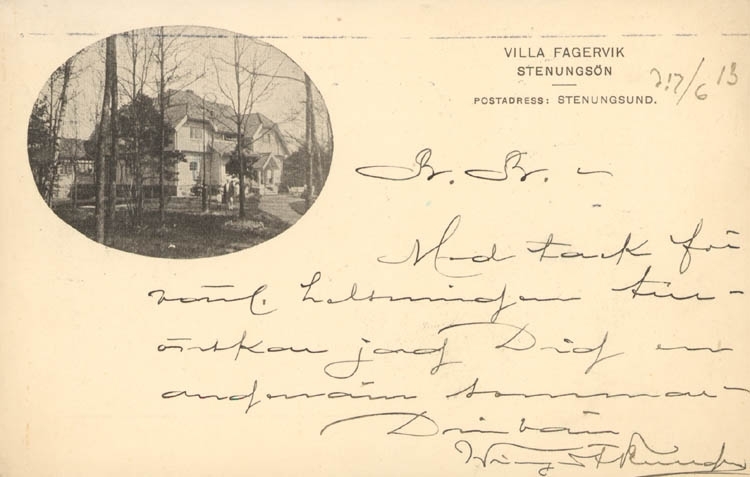 VILLA FAGERVIK
STENUNGSÖN
POSTADRESS: STENUNGSUND.
/6 13
B. B. –
Med tack för
vänl. helsningen till-
önskar jag Dig en
angenäm sommar
Din vän